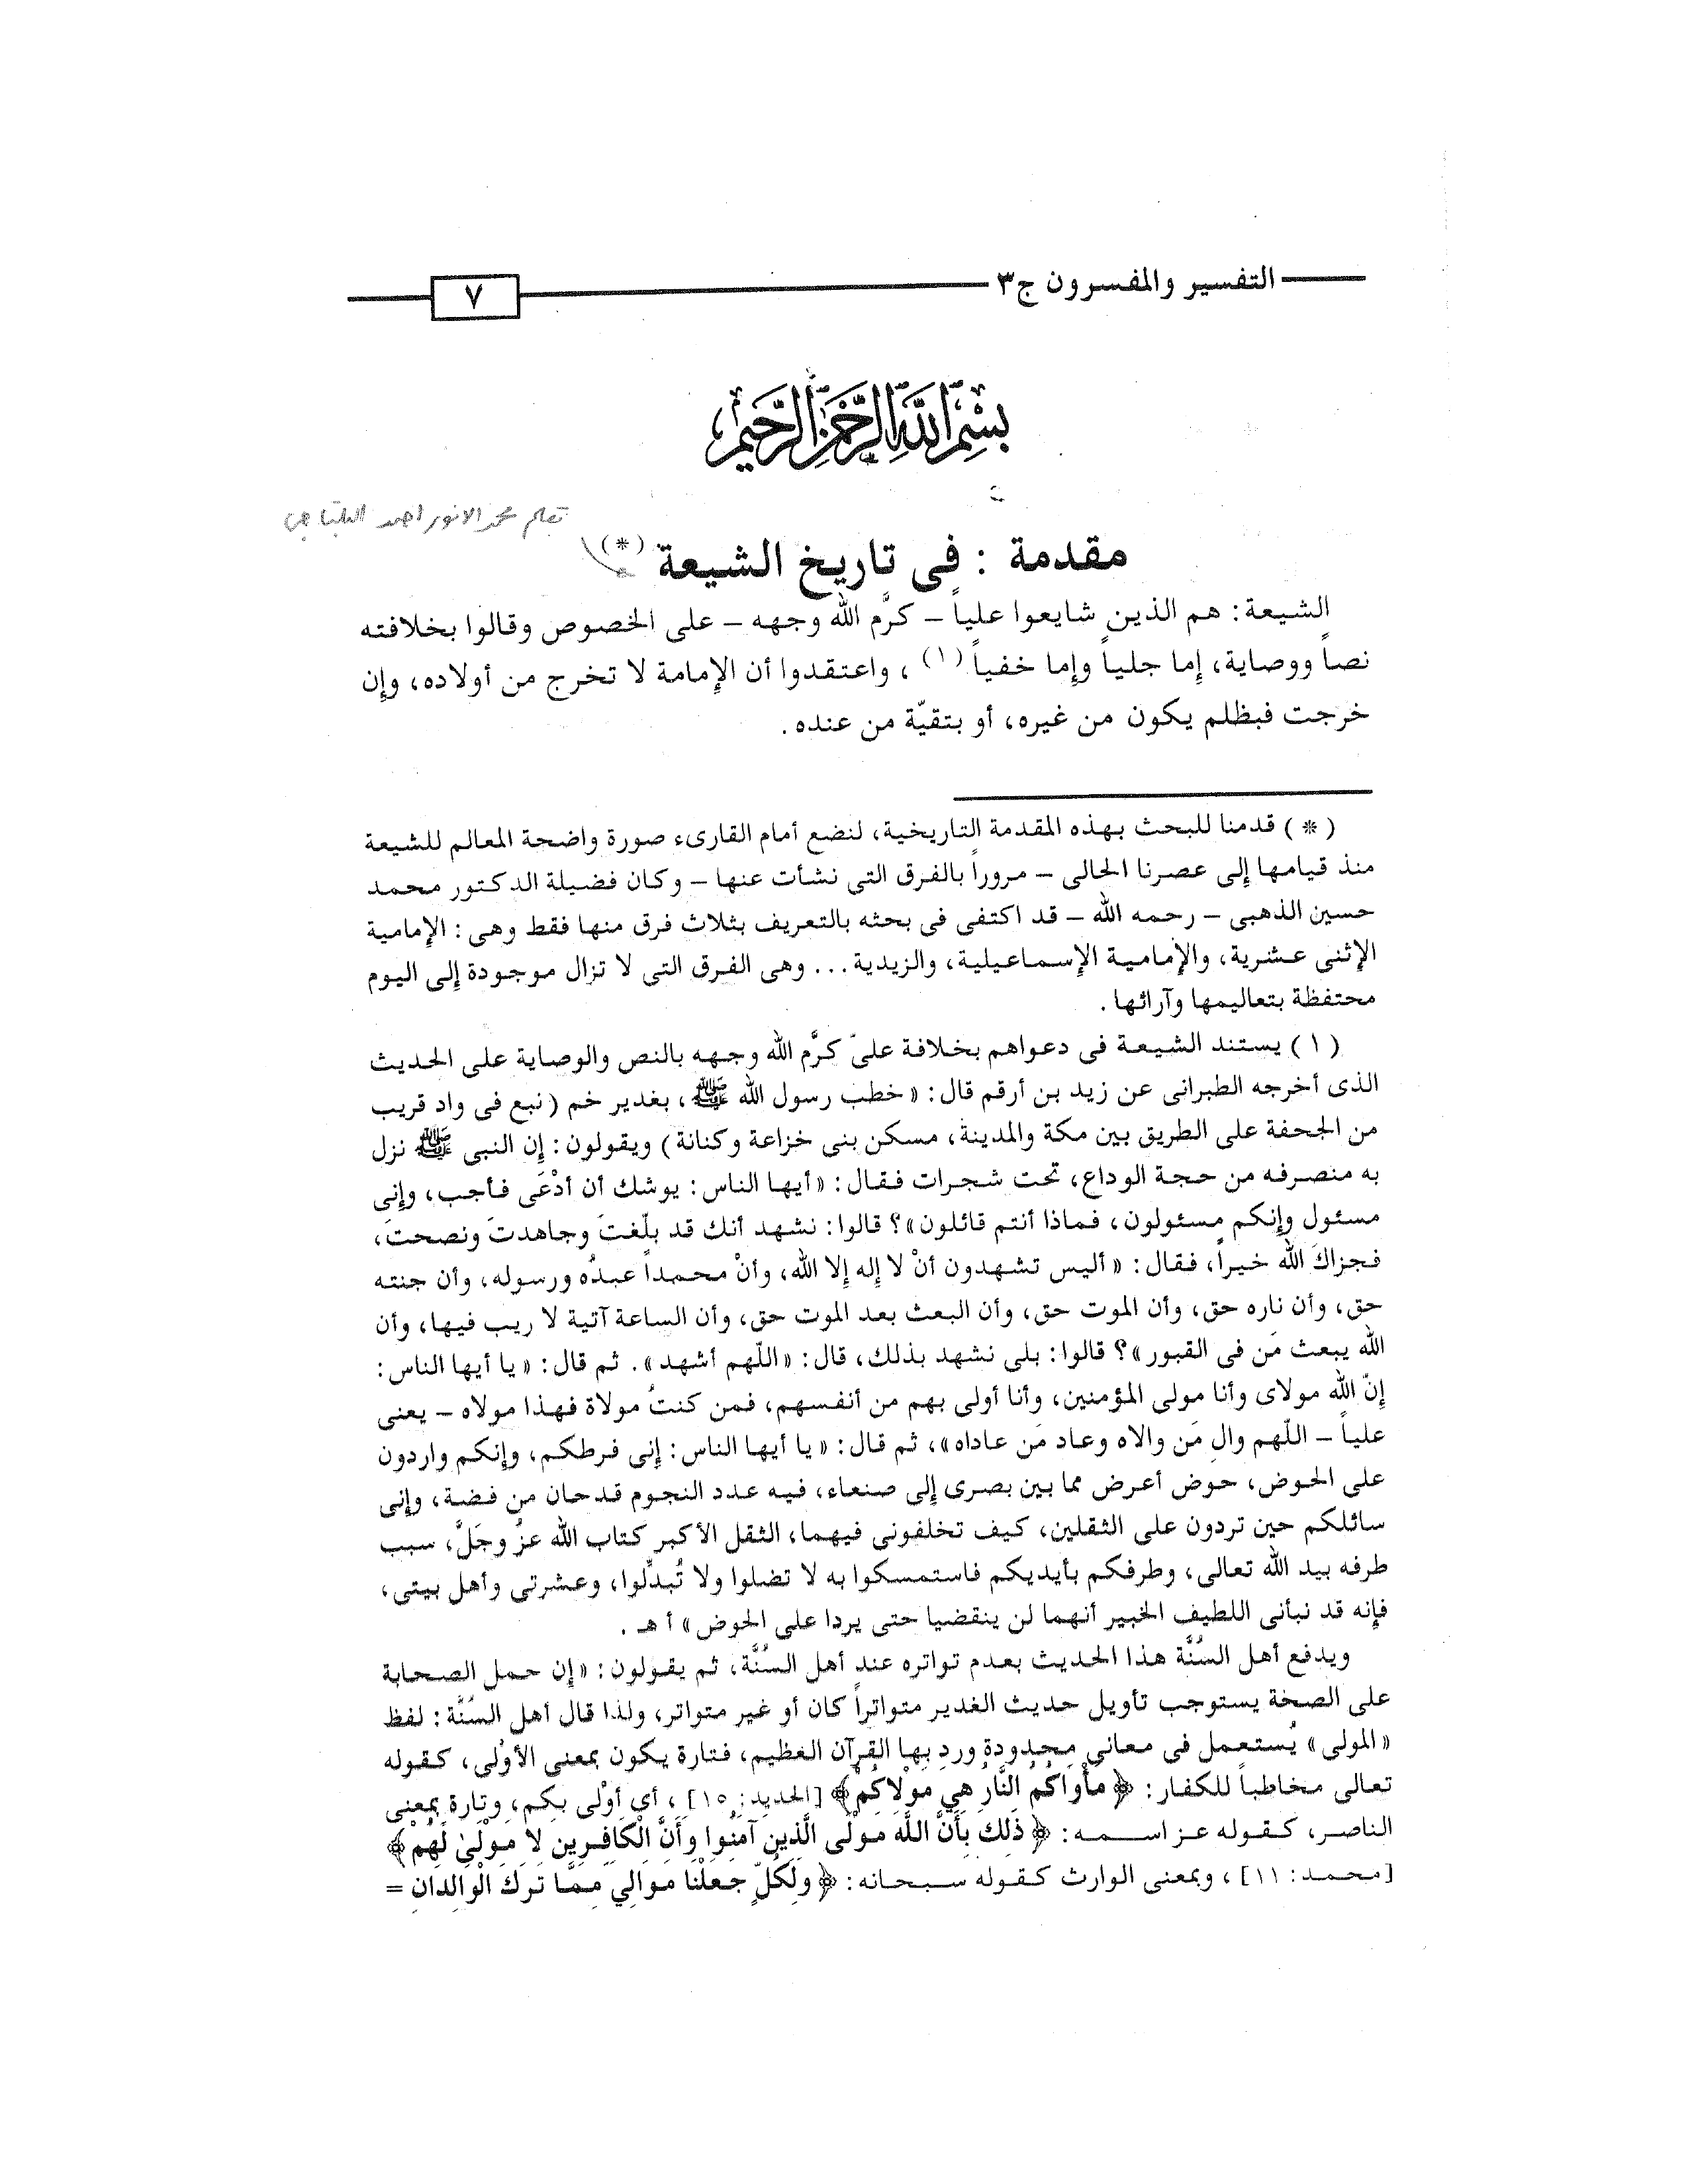 التفسير والمفسرون ج٣
٧
بسم الله الرحمن الرحيم
بقلم محمد الانور احمد البلتاجي
مقدمة : فى تاريخ الشيعة (*)
الشيعة: هم الذين شايعوا علياً – كرَّم الله وجهه – على الخصوص وقالوا بخلافته
نصاً ووصاية، إما جلياً وإما خفياً (١) ، واعتقدوا أن الإمامة لا تخرج من أولاده، وإن
خرجت فبظلم يكون من غيره، أو بتقيّة من عنده .
( * ) قدمنا للبحث بهذه المقدمة التاريخية، لنضع أمام القارىء صورة واضحة المعالم للشيعة
منذ قيامها إلى عصرنا الحالى – مروراً بالفرق التى نشأت عنها – وكان فضيلة الدكتور محمد
حسين الذهبى – رحمه الله – قد اكتفى فى بحثه بالتعريف بثلاث فرق منها فقط وهى : الإمامية
الإثنى عشرية، والإمامية الإسماعيلية، والزيدية... وهى الفرق التى لا تزال موجودة إلى اليوم
محتفظة بتعاليمها وآرائها .
( ١ ) يستند الشيعة فى دعواهم بخلافة علىّ كرَّم الله وجهه بالنص والوصاية على الحديث
الذى أخرجه الطبرانى عن زيد بن أرقم قال: «خطب رسول الله ﷺ، بغدير خم (نبع فى واد قريب
من الجحفة على الطريق بين مكة والمدينة، مسكن بنى خزاعة وكنانة) ويقولون: إن النبى ﷺ نزل
به منصرفه من حجة الوداع، تحت شجرات فقال: «أيها الناس: يوشك أن أدْعَى فأجب، وإنى
مسئول وإنكم مسئولون، فماذا أنتم قائلون»؟ قالوا: نشهد أنك قد بلّغتَ وجاهدتَ ونصحتَ،
فجزاكَ الله خيراً، فقال: «أليس تشهدون أنْ لا إله إلا الله، وأنْ محمداً عبدُه ورسوله، وأن جنته
حق، وأن ناره حق، وأن الموت حق، وأن البعث بعد الموت حق، وأن الساعة آتية لا ريب فيها، وأن
الله يبعث مَن فى القبور»؟ قالوا: بلى نشهد بذلك، قال: «اللّهم أشهد». ثم قال: «يا أيها الناس:
إنّ الله مولاى وأنا مولى المؤمنين، وأنا أولى بهم من أنفسهم، فمن كنتُ مولاة فهذا مولاه – يعنى
علياً – اللّهم والِ مَن والاه وعاد مَن عاداه»، ثم قال: «يا أيها الناس: إنى فرطكم، وإنكم واردون
على الحوض، حوض أعرض مما بين بصرى إلى صنعاء، فيه عدد النجوم قدحان من فضة، وإنى
سائلكم حين تردون على الثقلين، كيف تخلفونى فيهما، الثقل الأكبر كتاب الله عزَّ وجَلَّ، سبب
طرفه بيد الله تعالى، وطرفكم بأيديكم فاستمسكوا به لا تضلوا ولا تُبدِّلوا، وعشرتى وأهل بيتى،
فإنه قد نبأنى اللطيف الخبير أنهما لن ينقضيا حتى يردا على الحوض» أهـ .
ويدفع أهل السُنَّة هذا الحديث بعدم تواتره عند أهل السُنَّة، ثم يقولون: «إن حمل الصحابة
على الصخة يستوجب تأويل حديث الغدير متواتراً كان أو غير متواتر، ولذا قال أهل السُنَّة: لفظ
«المولى» يُستعمل فى معانى محدودة ورد بها القرآن العظيم، فتارة يكون بمعنى الأوْلى، كقوله
تعالى مخاطباً للكفار: ﴿ مَأْوَاكُمُ النَّارُ هِيَ مَوْلاكُمْ﴾ [الحديد: ١٥] ، أي أوْلى بكم، وتارة بمعنى
الناصر، كقوله عز اسمه: ﴿ ذَلِكَ بِأَنَّ اللَّهَ مَوْلَى الَّذِينَ آمَنُوا وَأَنَّ الْكَافِرِينَ لا مَوْلَىٰ لَهُمْ﴾
[محمد: ١١] ، وبمعنى الوارث كقوله سبحانه: ﴿ وَلِكُلٍّ جَعَلْنَا مَوَالِيَ مِمَّا تَرَكَ الْوَالِدَانِ =